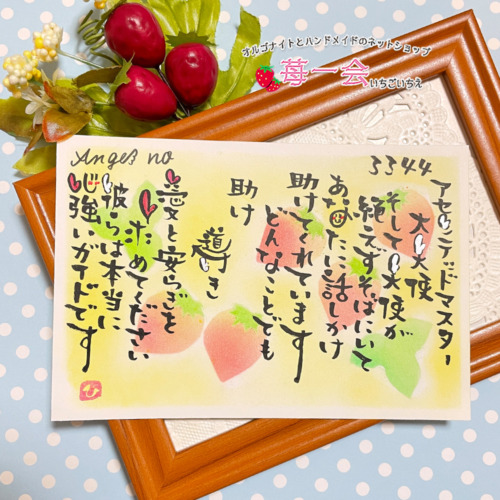 オルゴナイトとハンドメイドのネットショップ
苺一会
いちごいちえ
Angel no
3344
アセンデッドマスター
大天使
そして天使が
絶えずそばにいて
あなたに話しかけ
助けてくれています
どんなことでも
助け
導き
愛と安らぎを
求めてください
彼らは本当に
心強いガイドです